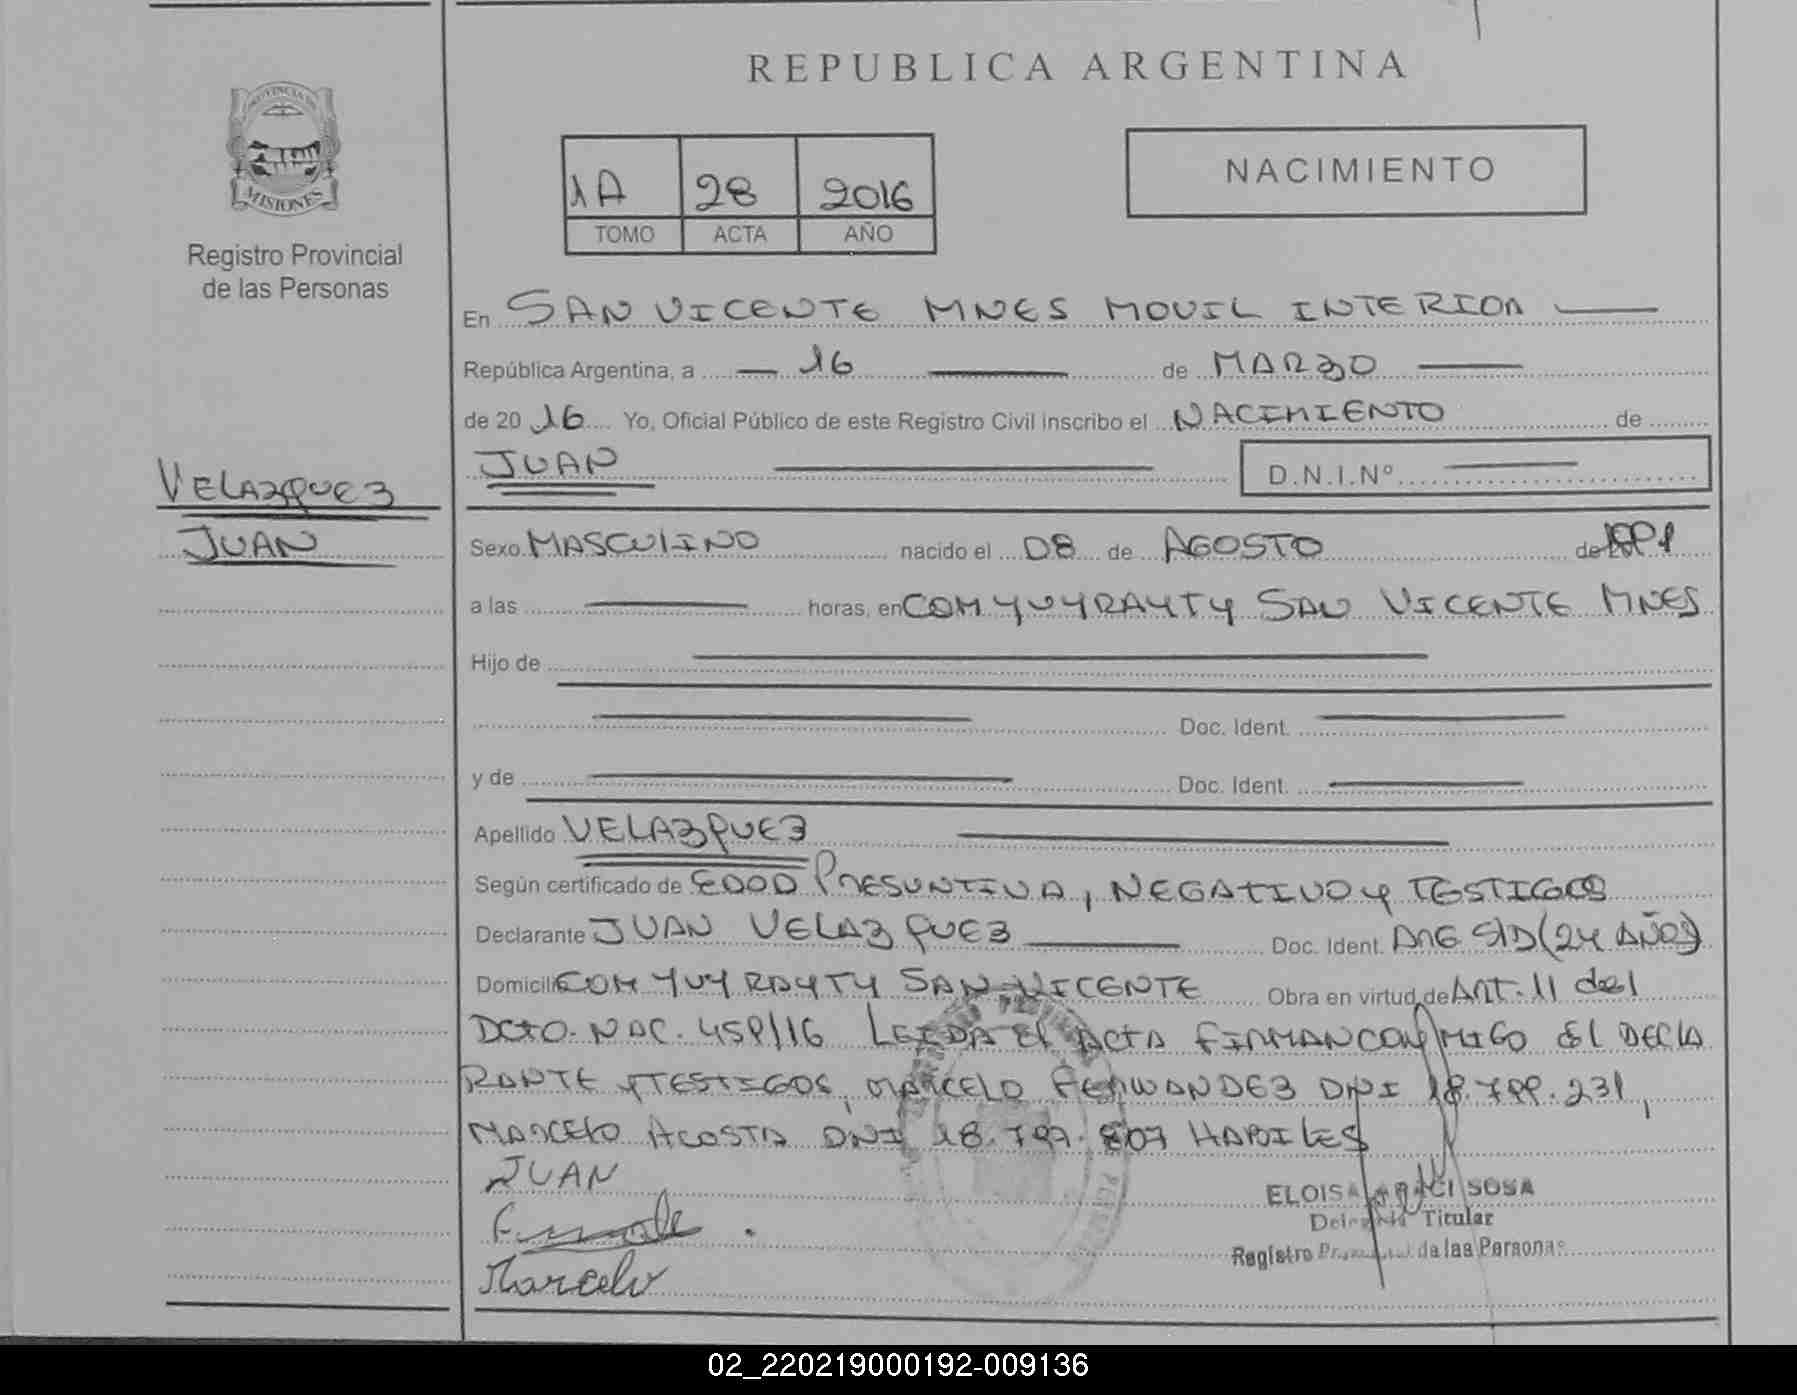 REPUBLICA ARGENTINA
PROVINCIA DE
MISIONES
Registro Provincial
de las Personas
1A 28 2016
TOMO ACTA AÑO
NACIMIENTO
En SAN VICENTE MNES MOVIL INTERIOR
República Argentina, a 16 de MARZO
de 20 16 Yo, Oficial Público de este Registro Civil inscribo el NACIMIENTO de
JUAN D.N.I.Nº
VELAZQUEZ
JUAN
Sexo MASCULINO nacido el 08 de AGOSTO de 1991
a las horas, en COM YVYRAYTY SAN VICENTE MNES
Hijo de
Doc. Ident.
y de Doc. Ident.
Apellido VELAZQUEZ
Según certificado de EDAD PRESUNTIVA, NEGATIVO y TESTIGOS
Declarante JUAN VELAZQUEZ Doc. Ident. ARG S/D (24 AÑOS)
Domicili COM YVYRAYTY SAN VICENTE Obra en virtud de ART. 11 del
DCTO. NAC. 459/16 LEIDA El ACTA FIRMAN CONMIGO El DECLA
RANTE y TESTIGOS, MARCELO FERNANDEZ DNI 18.799.231,
MARCELO ACOSTA DNI 18.797.807 HABILES
JUAN
Marcelo
ELOISA SOSA
Titular
Registro de las Personas
02_220219000192-009136